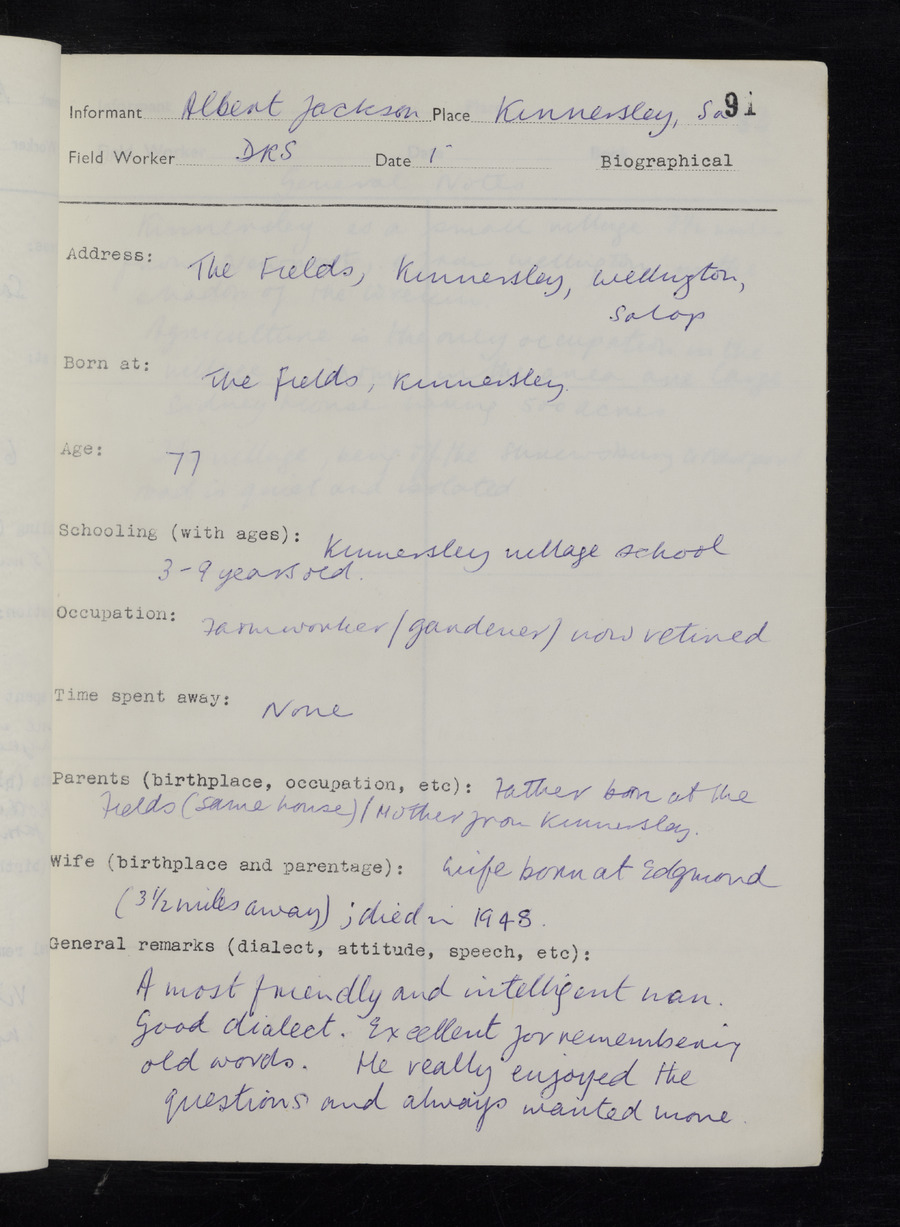 91
Informant Albert Jackson Place Kinnersley, Sa
Field Worker DRS Date Biographical
Address: The Fields, Kinnersley, Wellington,
Salop
Born at: The Fields, Kinnersley.
Age: 77
Schooling (with ages): Kinnersley village school
3-9 years old.
Occupation: Farmworker/gardener/ now retired
Time spent away: None
Parents (birthplace, occupation, etc): Father born at the
Fields (same house)/Mother from Kinnersley.
Wife (birthplace and parentage): Wife born at Edgmond
(3½ miles away); died in 1948.
General remarks (dialect, attitude, speech, etc):
A most friendly and intelligent man.
Good dialect. Excellent for remembering
old words. He really enjoyed the
questions and always wanted more.